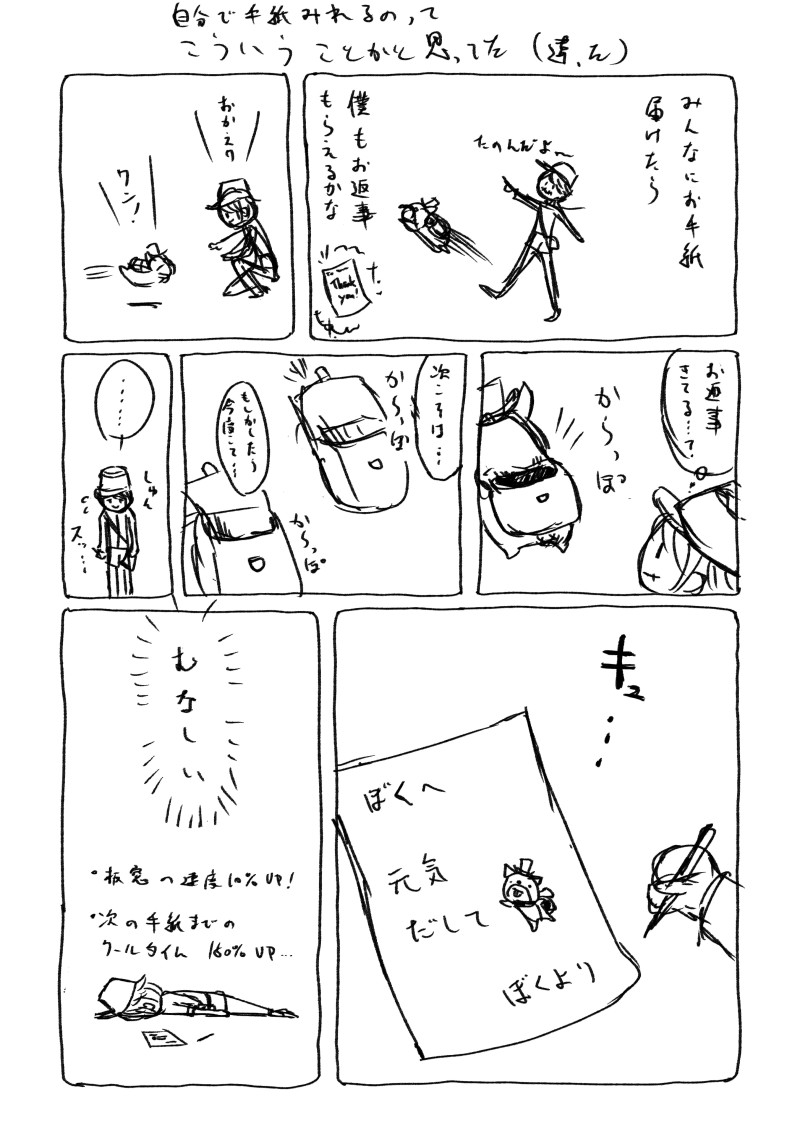 自分で手紙みれるのって
こういうことかと思ってた(違った)
みんなにお手紙
届けたら
たのんだよ〜
僕もお返事
もらえるかな
Thank
you!
おかえり
ワン!
お返事
きてる…?
からっぽ
次こそは…
から〜っぽ
もしかしたら
今度こそ…
から〜っぽ
………
しゅん
スッ…
キュ…
ぼくへ
元気
だして
ぼくより
むなしい
・板窓の速度10%UP!
・次の手紙までの
クールタイム 160%UP…